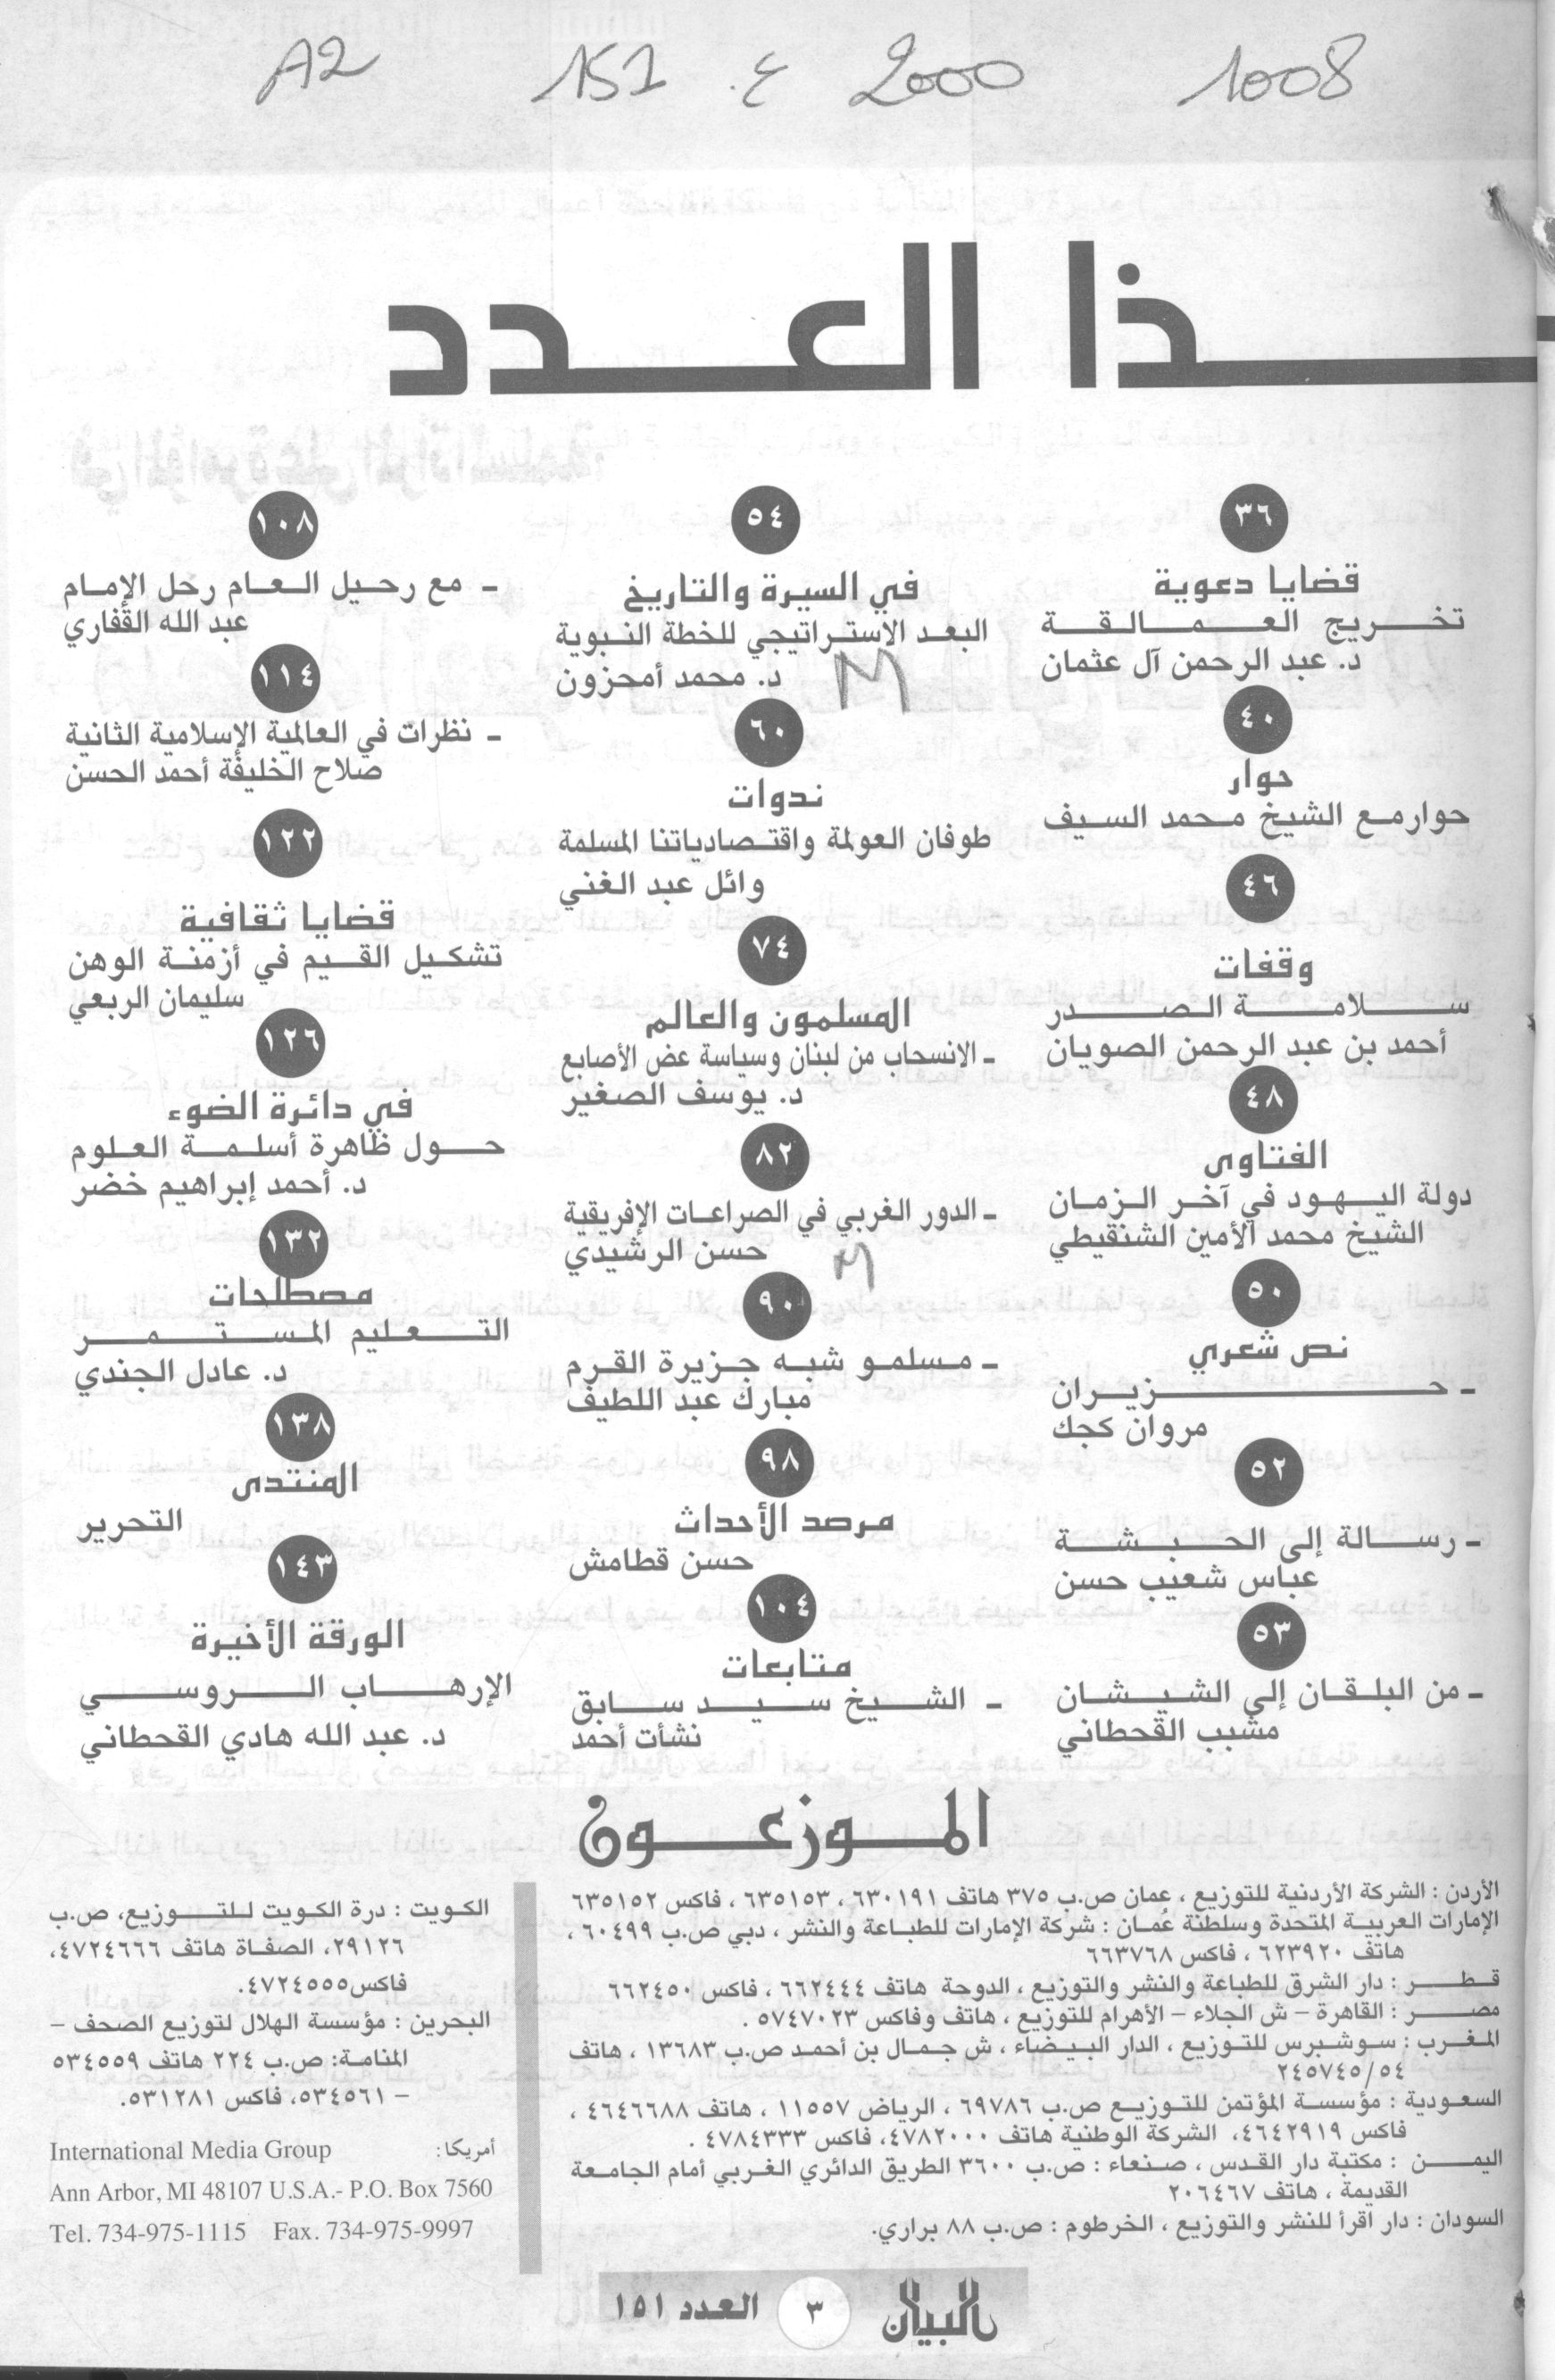 A2 151 ع. 2000 1008
ـذا العـدد
٣٦
قضايا دعوية
تخريج العمالقة
د. عبد الرحمن آل عثمان
٤٠
حوار
حوار مع الشيخ محمد السيف
٤٦
وقفات
سلامة الصدر
أحمد بن عبد الرحمن الصويان
٤٨
الفتاوى
دولة اليهود في آخر الزمان
الشيخ محمد الأمين الشنقيطي
٥٠
نص شعري
- حزيران
مروان كجك
٥٢
- رسالة إلى الحبشة
عباس شعيب حسن
٥٣
- من البلقان إلى الشيشان
مشبب القحطاني
٥٤
في السيرة والتاريخ
البعد الاستراتيجي للخطة النبوية
د. محمد أمحزون M
٦٠
ندوات
طوفان العولمة واقتصادياتنا المسلمة
وائل عبد الغني
٧٤
المسلمون والعالم
- الانسحاب من لبنان وسياسة عض الأصابع
د. يوسف الصغير
٨٢
- الدور الغربي في الصراعات الإفريقية
حسن الرشيدي M
٩٠
- مسلمو شبه جزيرة القرم
مبارك عبد اللطيف
٩٨
مرصد الأحداث
حسن قطامش
١٠٤
متابعات
- الشيخ سيد سابق
نشأت أحمد
١٠٨
- مع رحيل العام رحل الإمام
عبد الله القفاري
١١٤
- نظرات في العالمية الإسلامية الثانية
صلاح الخليفة أحمد الحسن
١٢٢
قضايا ثقافية
تشكيل القيم في أزمنة الوهن
سليمان الربعي
١٢٦
في دائرة الضوء
حول ظاهرة أسلمة العلوم
د. أحمد إبراهيم خضر
١٣٢
مصطلحات
التعليم المستمر
د. عادل الجندي
١٣٨
المنتدى
التحرير
١٤٣
الورقة الأخيرة
الإرهاب الروسي
د. عبد الله هادي القحطاني
الموزعون
الأردن : الشركة الأردنية للتوزيع ، عمان ص.ب ٣٧٥ هاتف ٦٣٠١٩١ ، ٦٣٥١٥٣ ، فاكس ٦٣٥١٥٢
الإمارات العربية المتحدة وسلطنة عُمان : شركة الإمارات للطباعة والنشر ، دبي ص.ب ٦٠٤٩٩ ،
هاتف ٦٢٣٩٢٠ ، فاكس ٦٦٣٧٦٨
قطر : دار الشرق للطباعة والنشر والتوزيع ، الدوحة هاتف ٦٦٢٤٤٤ ، فاكس ٦٦٢٤٥٠
مصر : القاهرة – ش الجلاء – الأهرام للتوزيع ، هاتف وفاكس ٥٧٤٧٠٢٣ .
المغرب : سوشبرس للتوزيع ، الدار البيضاء ، ش جمال بن أحمد ص.ب ١٣٦٨٣ ، هاتف
٢٤٥٧٤٥/٥٤
السعودية : مؤسسة المؤتمن للتوزيع ص.ب ٦٩٧٨٦ ، الرياض ١١٥٥٧ ، هاتف ٤٦٤٦٦٨٨ ،
فاكس ٤٦٤٢٩١٩، الشركة الوطنية هاتف ٤٧٨٢٠٠٠، فاكس ٤٧٨٤٣٣٣ .
اليمن : مكتبة دار القدس ، صنعاء : ص.ب ٣٦٠٠ الطريق الدائري الغربي أمام الجامعة
القديمة ، هاتف ٢٠٦٤٦٧
السودان : دار اقرأ للنشر والتوزيع ، الخرطوم : ص.ب ٨٨ براري.
الكويت : درة الكويت للتوزيع، ص.ب
٢٩١٢٦، الصفاة هاتف ٤٧٢٤٦٦٦،
فاكس٤٧٢٤٥٥٥.
البحرين : مؤسسة الهلال لتوزيع الصحف –
المنامة: ص.ب ٢٢٤ هاتف ٥٣٤٥٥٩
– ٥٣٤٥٦١، فاكس ٥٣١٢٨١.
أمريكا: International Media Group
Ann Arbor, MI 48107 U.S.A.- P.O. Box 7560
Tel. 734-975-1115 Fax. 734-975-9997
البيان ٣ العدد ١٥١